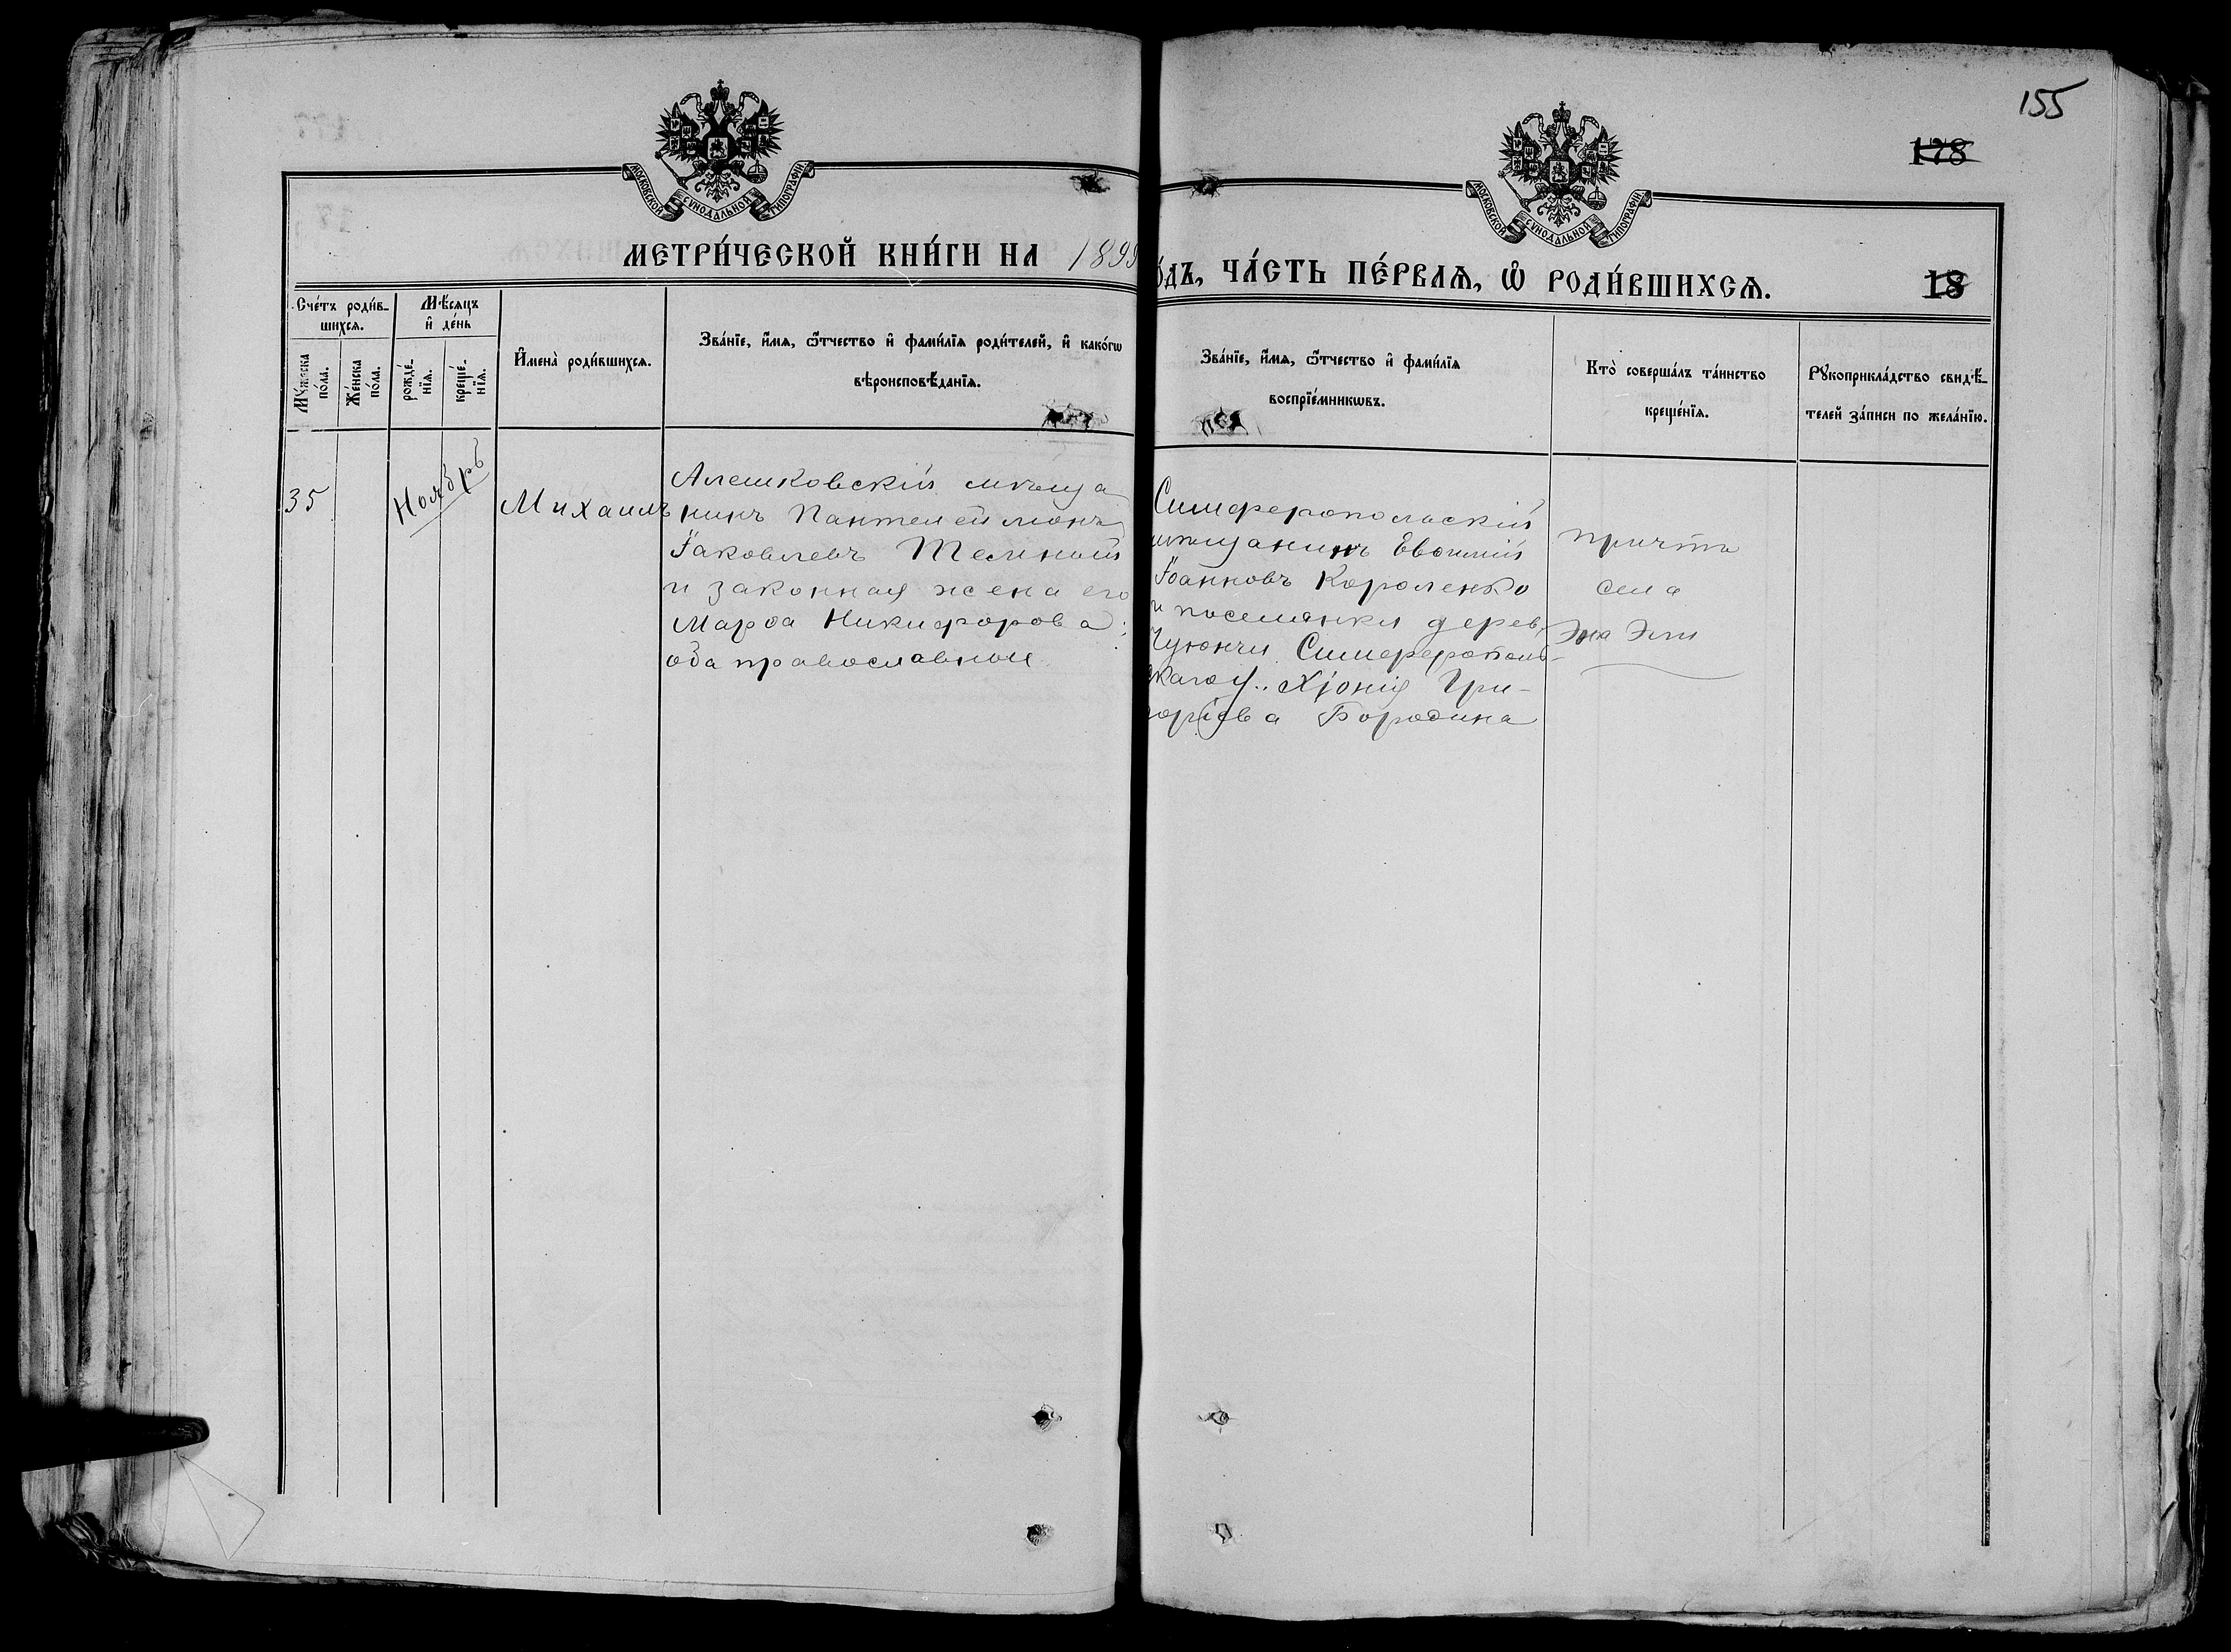 155
178
МОСКОВСКОЙ СѴНОДАЛЬНОЙ ТИПОГРАФІИ
МОСКОВСКОЙ СѴНОДАЛЬНОЙ ТИПОГРАФІИ
МЕТРИ́ЧЕСКОЙ КНИ́ГИ НА 1899
О́ДЪ, ЧА́СТЬ ПЕ́РВАЯ, Ѡ҆ РОДИ́ВШИХСЯ.
18
Сче́тъ роди́в-
шихся.
Мѣ́сяцъ
и҆ де́нь
Мꙋ́жеска
по́ла.
Же́нска
по́ла.
рожде́-
нїя.
креще́-
нїя.
И҆мена̀ роди́вшихся.
Зва́нїе, и҆́мя, ѻ҆́тчество и҆ фами́лїя роди́телей, и҆ како́гѡ
вѣроисповѣ́данїя.
Зва́нїе, и҆́мя, ѻ҆́тчество и҆ фами́лїя
воспрїе́мникѡвъ.
Кто̀ соверша́лъ та́инство
креще́нїя.
Рꙋкоприкла́дство свидѣ́-
телей за́писи по жела́нїю.
35
Ноябрь
Михаилъ
Алешковскій мѣща
нинъ Пантелеймонъ
Іаковлевъ Темный
и законная жена его
Марѳа Никифорова;
оба православные
Симферопольскій
мѣщанинъ Евѳимій
Іоанновъ Короленко
и поселянки дерев.
Чуюнчи Симферополь-
скаго у. Хіонія Гри-
горіева Бородина
причтъ
села
Эки Эли